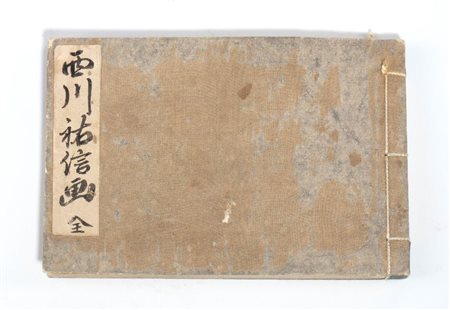 西川祐信画 全